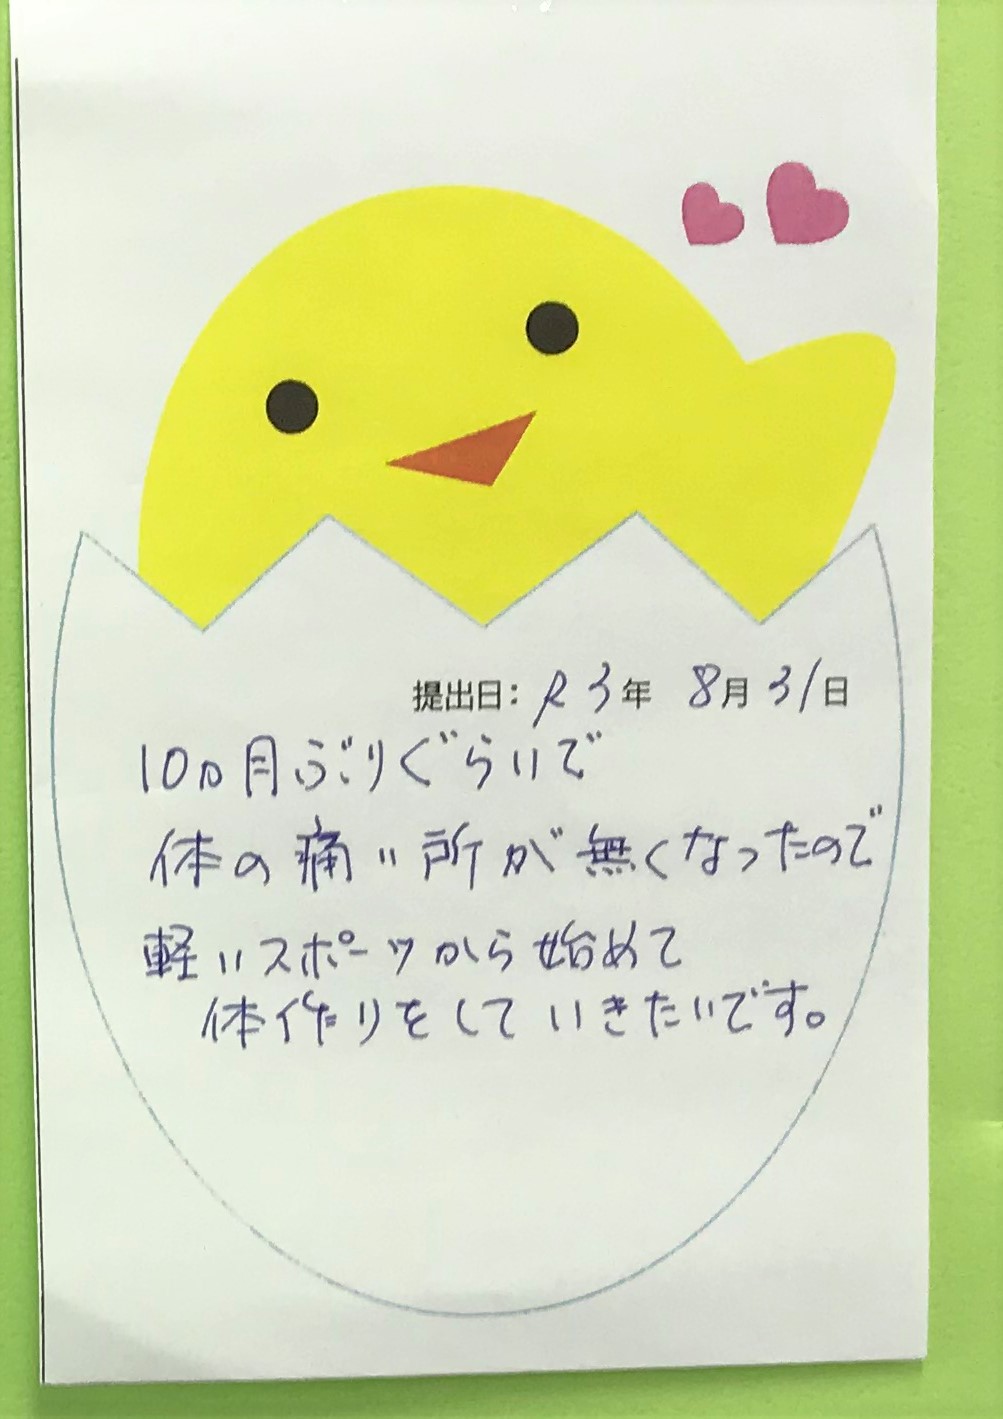 提出日: R3年 8月31日
10ヵ月ぶりぐらいで
体の痛い所が無くなったので
軽いスポーツから始めて
体作りをしていきたいです。